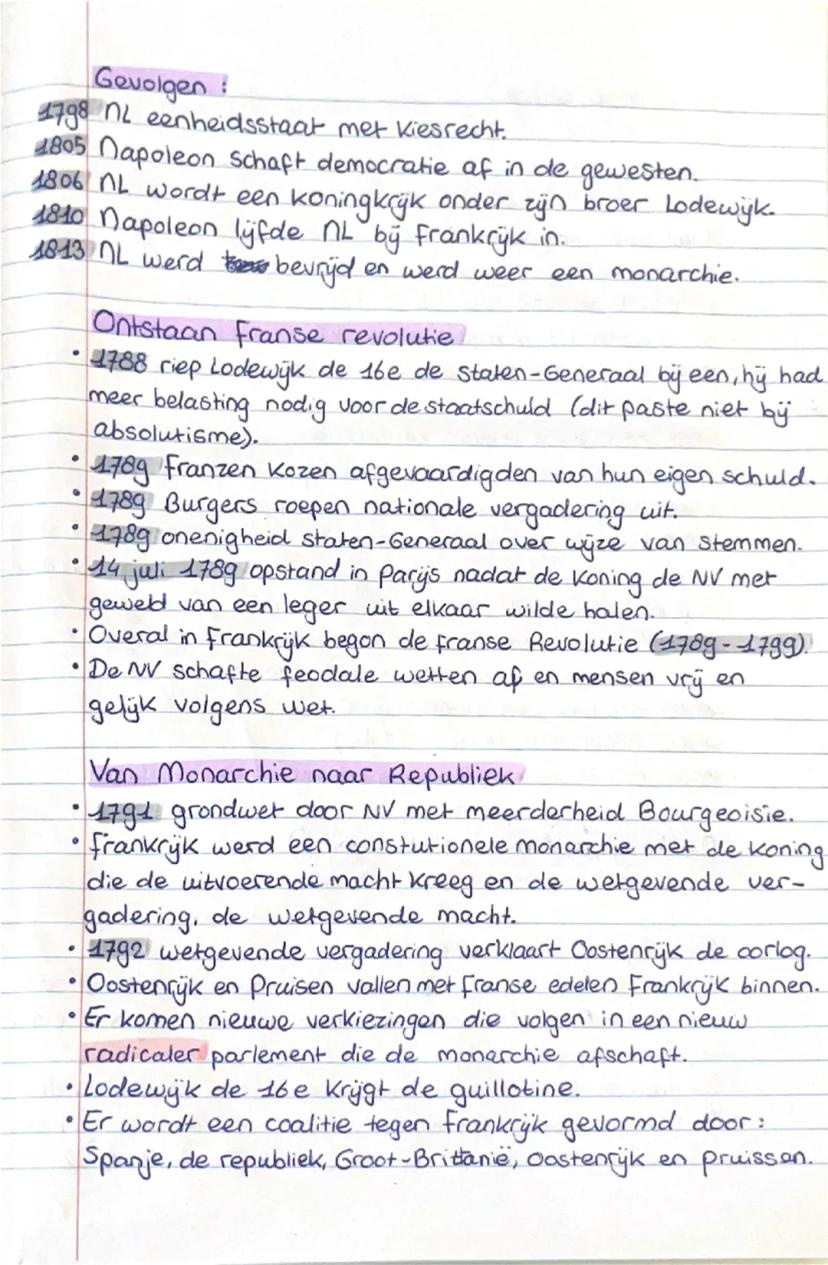 Gevolgen :
1798 NL eenheidsstaat met kiesrecht.
1805 Napoleon schaft democratie af in de gewesten.
1806 NL wordt een koningkrijk onder zijn broer Lodewijk.
1810 Napoleon lijfde NL bij Frankrijk in.
1813 NL werd bevrijd en werd weer een monarchie.
Ontstaan Franse revolutie
• 1788 riep Lodewijk de 16e de Staten-Generaal bij een, hij had
meer belasting nodig voor de staatschuld (dit paste niet bij
absolutisme).
• 1789 Franzen kozen afgevaardigden van hun eigen schuld.
• 1789 Burgers roepen nationale vergadering uit.
• 1789 onenigheid Staten-Generaal over wijze van stemmen.
• 14 juli 1789 opstand in Parijs nadat de koning de NV met
geweld van een leger uit elkaar wilde halen.
• Overal in Frankrijk begon de Franse Revolutie (1789-1799).
• De NV schafte feodale wetten af en mensen vrij en
gelijk volgens wet.
Van Monarchie naar Republiek
• 1791 grondwet door NV met meerderheid Bourgeoisie.
• Frankrijk werd een constutionele monarchie met de koning
die de uitvoerende macht kreeg en de wetgevende ver-
gadering, de wetgevende macht.
• 1792 wetgevende vergadering verklaart Oostenrijk de oorlog.
• Oostenrijk en Pruisen vallen met Franse edelen Frankrijk binnen.
• Er komen nieuwe verkiezingen die volgen in een nieuw
radicaler parlement die de monarchie afschaft.
• Lodewijk de 16e krijgt de guillotine.
• Er wordt een coalitie tegen Frankrijk gevormd door :
Spanje, de republiek, Groot-Brittanië, Oostenrijk en Pruissen.